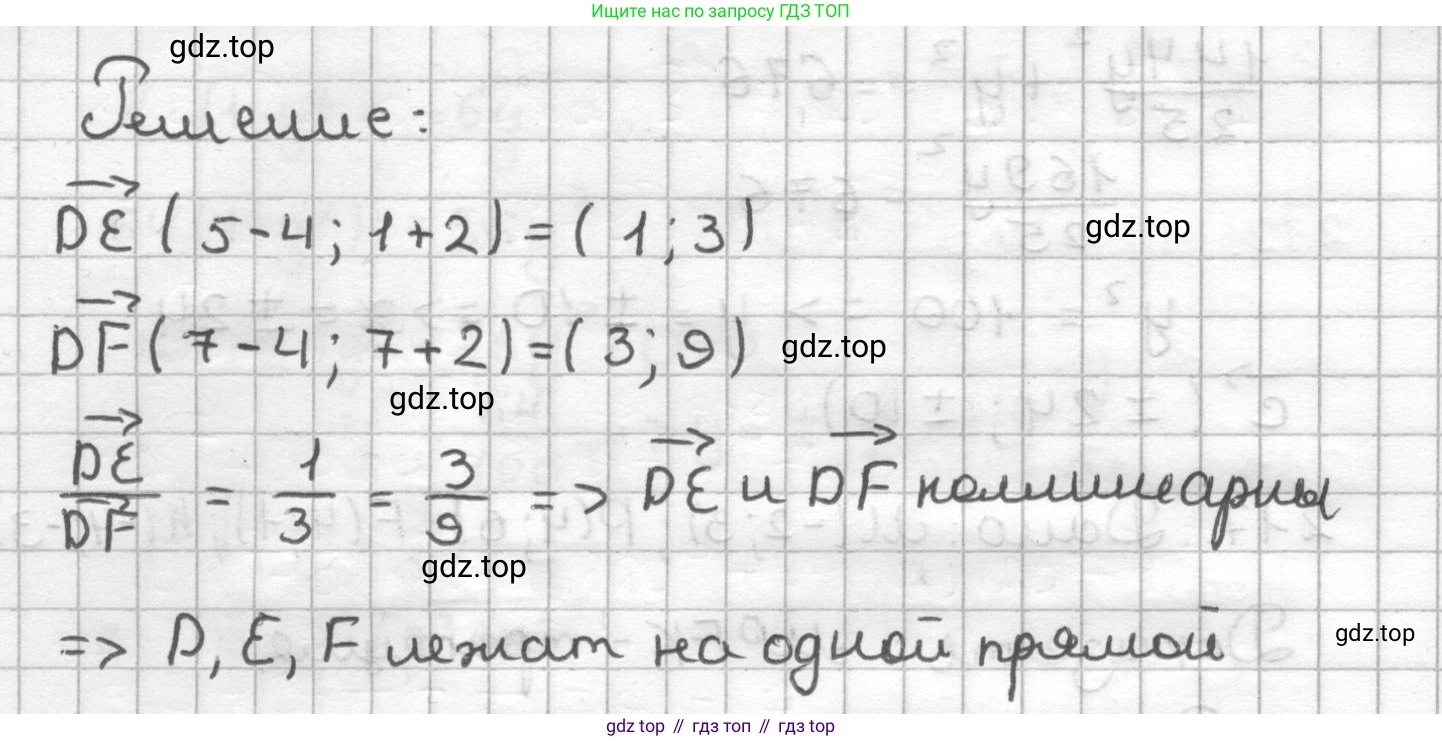 Ищите нас по запросу ГДЗ ТОП
gdz.top
Решение:
DE ( 5-4; 1+2) = ( 1; 3)
gdz.top
DF ( 7-4; 7+2) = ( 3; 9)
gdz.top
gdz.top
DE/DF = 1/3 = 3/9 => DE и DF коллинеарны
gdz.top
=> D, E, F лежат на одной прямой
gdz.top
gdz top // гдз топ // гдз top